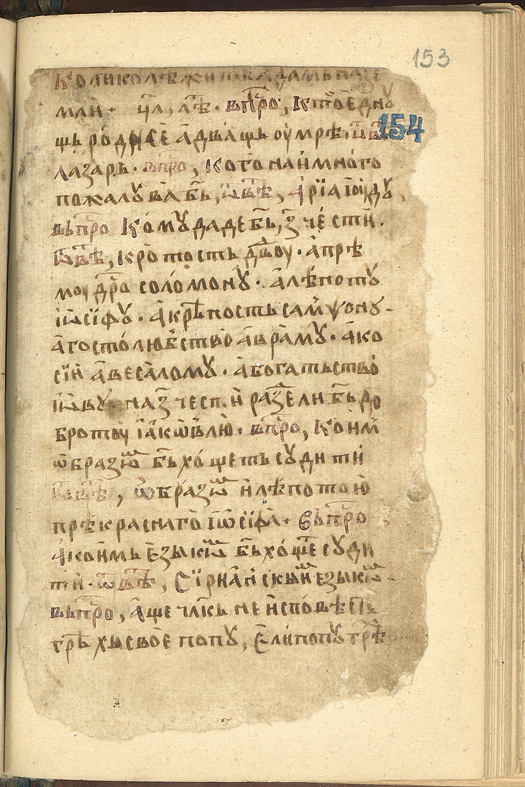 153
Колико лѣжи адамь на зе
мли · ц҃л лѣ · въпро, Кто едну
щь роди се а дващь оумрѣ,
154
лазарь · въпро, Кого наимного
пожалува б҃ь, ѿвѣ, арїа їюду,
въпро Кому даде б҃ь, з҃ чести ·
ѿвѣ, кротость дв҃оу · а прѣ
моудро соломону · а лѣпоту
іѡсїфу · а крѣпость самѱону ·
а гостолюбство авраму · а ко
сїи авесалому · а богатьство
їѡву на з҃ чест · и раздели б҃ь до
бротоу їакѡвлю · въпро, Коим
ѡбразѡⷨ б҃ь хощеть судити
ѿвѣ, ѡбразѡⷨ и лѣпотою
прѣкраснаго їѡсїфа · въпро
Акоимь езыкѡⷨ б҃ь хоще суди
ти · ѿвѣ, Сїрнанскый езыкѡⷨ
въпро, Аще чл҃кь не исповѣсть
грѣхы свое попу, Ели попу грѣ